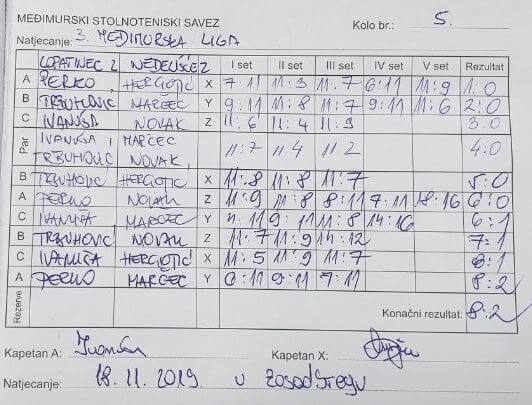 MEĐIMURSKI STOLNOTENISKI SAVEZ
Kolo br.: 5.
Natjecanje: 3. MEĐIMURSKA LIGA
LOPATINEC 2 NEDELIŠĆE 2 I set II set III set IV set V set Rezultat
A PERKO HERGOTIĆ X 7:11 11:3 11:7 6:11 11:9 1:0
B TRBUHOVIĆ MARČEC Y 9:11 11:8 11:7 9:11 11:6 2:0
C IVANUŠA NOVAK Z 11:6 11:4 11:9 3:0
Par IVANUŠA I MARČEC 11:7 11:4 11:2 4:0
TRBUHOVIĆ NOVAK
B TRBUHOVIĆ HERGOTIĆ X 11:8 11:8 11:7 5:0
A PERKO NOVAK Z 11:9 11:8 8:11 7:11 18:16 6:0
C IVANUŠA MARČEC Y 9:11 11:8 14:16 6:1
B TRBUHOVIĆ NOVAK Z 11:7 11:9 14:12 7:1
C IVANUŠA HERGOTIĆ X 11:5 11:9 11:7 8:1
A PERKO MARČEC Y 9:11 7:11 8:2
Rezerve Konačni rezultat: 8:2
Kapetan A: Kapetan X:
Natjecanje: 18. 11. 2019. u